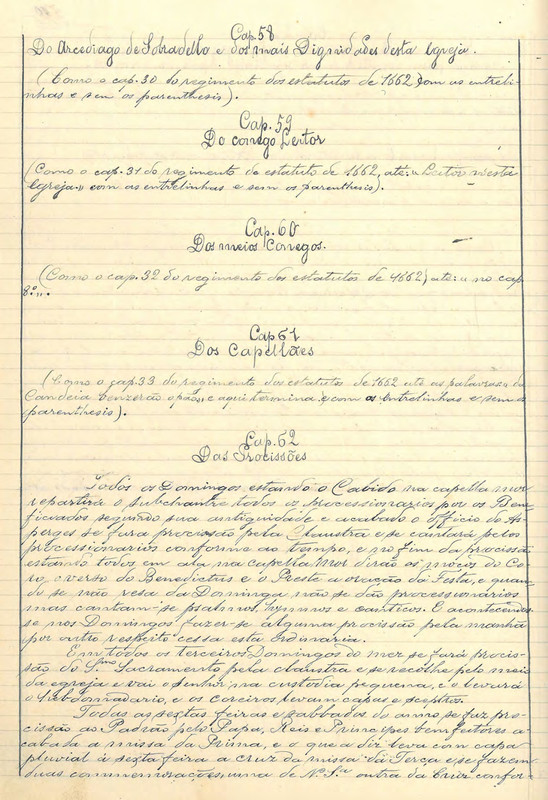 Cap. 58
Do Arcediago de Sobradello e dos mais Dignidades desta Igreja.
(Como o cap. 30 do regimento dos estatutos de 1662, com as entreli-
nhas e sem os parenthesis).
Cap. 59
Do conego Leitor
(Como o cap. 31 do regimento de estatuto de 1662, até: "Leitor n'esta
Igreja" com as entrelinhas e sem os parenthesis).
Cap. 60
Dos meios Conegos.
(Como o cap. 32 do regimento dos estatutos de 1662) até: " no cap.
8º".
Cap 61
Dos Capellães
(Como o cap. 33 do regimento dos estatutos de 1662 até as palavras: da
Candeia benzerão o pão, e aqui termina e com as entrelinhas e sem os
parenthesis).
Cap. 62
Das Procissões
Todos os Domingos estando o Cabido na capella mor
repartirá o subchantre todos os processionarios por os Ben-
ficiados segundo sua antiguidade e acabado o Officio do As-
perges se fará procissão pela Claustra e se cantará pelos
processionarios conforme ao tempo, e no fim da procissão
estando todos em ala na capella Mor dirão os moços do Co-
ro, o verso do Benedictus e o Preste a oração da Festa, e quan-
do se não resa da Dominga não se dão processionarios
mas cantam-se psalmos, hymnos e canticos. E acontecendo
se nos Domingos fazer-se alguma procissão pela manhã
por outro respeito cessa esta Ordinaria.
Em todos os terceiros Domingos do mez se fará procis-
são do S.mo Sacramento pela claustra e se recolhe pelo meio
da egreja e vai o Senhor na custodia pequena, e o levará
o Hebdomadario, e os coreiros levam capas e sceptros.
Todas as sextas feiras e sabbados do anno se faz pro-
cissão ao Padrão pelo Papa, Reis e Principes bemfeitores a-
cabada a missa da Prima, e o que a diz leva com capa
pluvial á sexta feira a cruz da missa da Terça e se fazem
duas commemorações, uma de N. S.ra outra da Cruz confor-